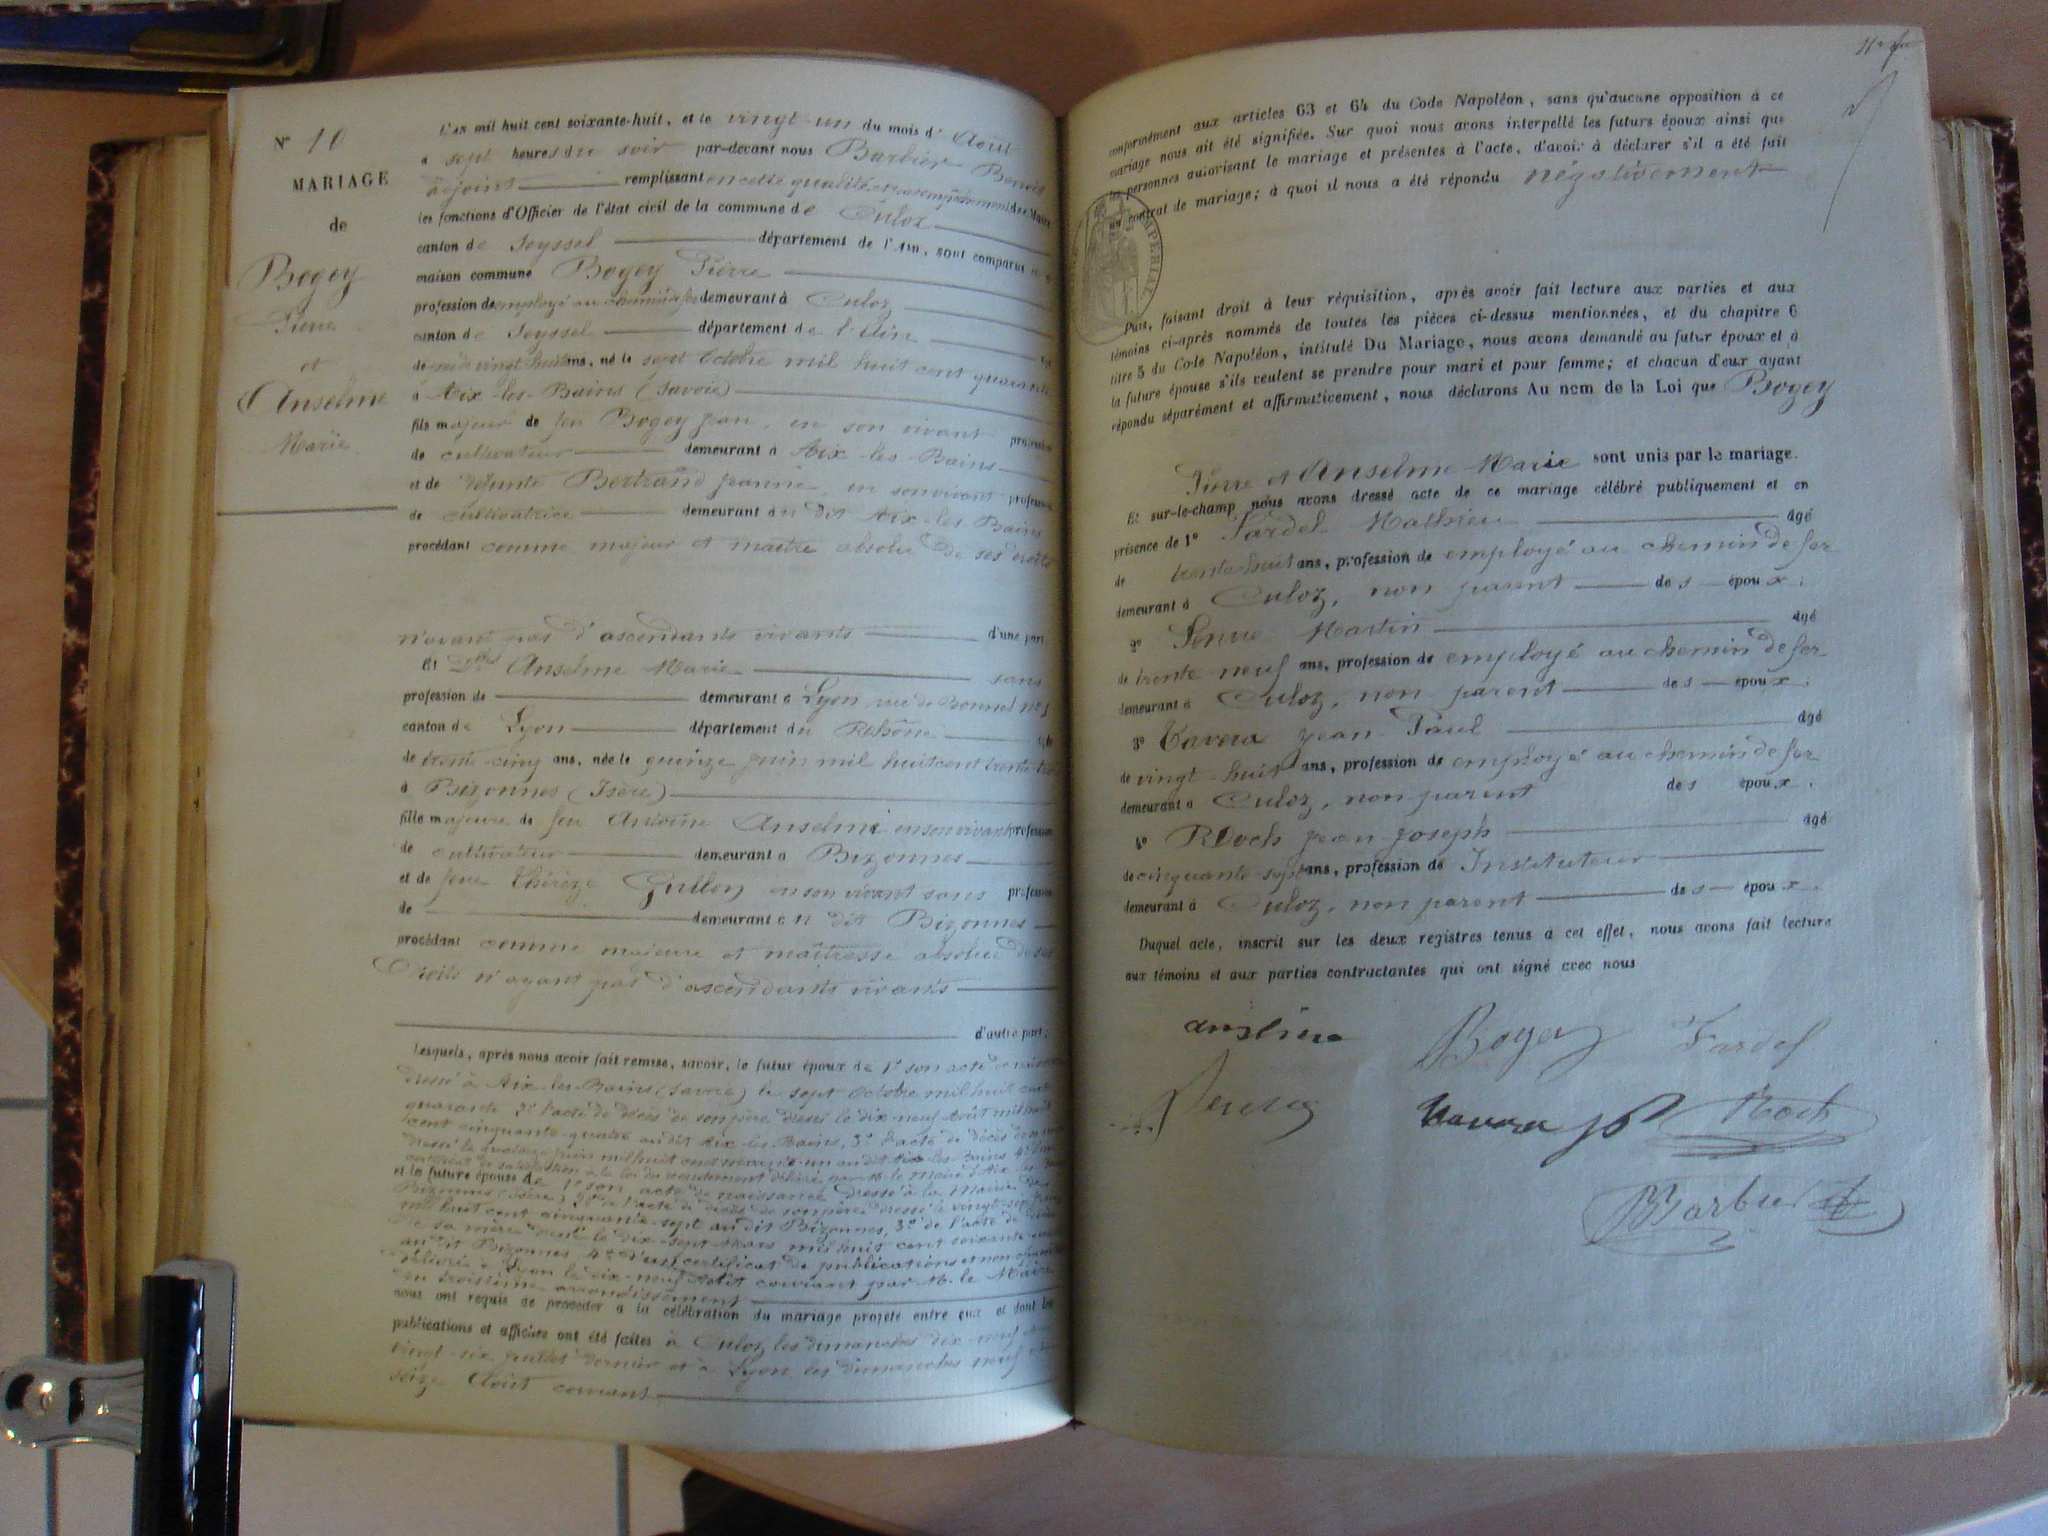 N° 10
MARIAGE
de
Bogey
Pierre
et
Anselme
Marie
L'an mil huit cent soixante-huit, et le vingt-un du mois d'Août
à sept heures du soir par-devant nous Barbier Benoit
adjoint remplissant en cette qualité et par empêchement du Maire
les fonctions d'Officier de l'état civil de la commune de Culoz
canton de Seyssel département de l'Ain, sont comparus
maison commune Bogey Pierre
profession de employé au chemin de fer demeurant à Culoz
canton de Seyssel département de l'Ain
de vingt huit ans, né le sept Octobre mil huit cent quarante
à Aix-les-Bains (Savoie)
fils majeur de feu Bogey Jean, en son vivant profession
de cultivateur demeurant à Aix-les-Bains
et de défunte Bertrand Jeanne, en son vivant profession
de cultivatrice demeurant au dit Aix-les-Bains
procédant comme majeur et maître absolu de ses droits
n'ayant pas d'ascendants vivants d'une part
Et Dlle Anselme Marie sans
profession de demeurant à Lyon, rue de Bonnel n° 1
canton de Lyon département du Rhône
de trente-cinq ans, née le quinze juin mil huit cent trente-trois
à Bizonnes (Isère)
fille majeure de feu Antoine Anselme en son vivant profession
de cultivateur demeurant à Bizonnes
et de feue Thérèze Guillon en son vivant sans profession
de demeurant au dit Bizonnes
procédant comme majeure et maîtresse absolue de ses
droits n'ayant pas d'ascendants vivants
d'autre part;
Lesquels, après nous avoir fait remise, savoir, le futur époux de 1° son acte de naissance
dressé à Aix-les-Bains (Savoie) le sept Octobre mil huit cent
quarante 2° l'acte de décès de son père dressé le dix-neuf Août mil huit
cent cinquante-quatre au dit Aix-les-Bains, 3° l'acte de décès de sa mère
dressé le quatorze juin mil huit cent soixante-un au dit Aix-les-Bains 4°
certificat de satisfaction à la loi du recrutement délivré par M. le Maire d'Aix-les-Bains
et la future épouse de 1° son acte de naissance dressé à la Mairie de
Bizonnes (Isère), 2° de l'acte de décès de son père dressé le vingt-sept
mil huit cent cinquante-sept au dit Bizonnes, 3° de l'acte de décès
de sa mère dressé le dix-sept Mars mil huit cent soixante
au dit Bizonnes 4° d'un certificat de publications et non opposition
délivré à Lyon le dix-neuf Août courant par M. le Maire
du troisième arrondissement
nous ont requis de procéder à la célébration du mariage projeté entre eux et dont les
publications et affiches ont été faites à Culoz les dimanches dix-neuf et
vingt-six juillet dernier et à Lyon les dimanches neuf et
seize Août courant
conformément aux articles 63 et 64 du Code Napoléon, sans qu'aucune opposition à ce
mariage nous ait été signifiée. Sur quoi nous avons interpellé les futurs époux ainsi que
les personnes autorisant le mariage et présentes à l'acte, d'avoir à déclarer s'il a été fait
un contrat de mariage; à quoi il nous a été répondu négativement
IMPERIAL
Puis, faisant droit à leur réquisition, après avoir fait lecture aux parties et aux
témoins ci-après nommés de toutes les pièces ci-dessus mentionnées, et du chapitre 6
titre 5 du Code Napoléon, intitulé Du Mariage, nous avons demandé au futur époux et à
la future épouse s'ils veulent se prendre pour mari et pour femme; et chacun d'eux ayant
répondu séparément et affirmativement, nous déclarons Au nom de la Loi que Bogey
Pierre et Anselme Marie sont unis par le mariage.
Et sur-le-champ nous avons dressé acte de ce mariage célébré publiquement et en
présence de 1° Fardel Mathieu âgé
de trente-huit ans, profession de employé au chemin de fer
demeurant à Culoz, non parent des époux.
2° Martin âgé
de trente neuf ans, profession de employé au chemin de fer
demeurant à Culoz, non parent des époux.
3° Tavera Jean Paul âgé
de vingt-huit ans, profession de employé au chemin de fer
demeurant à Culoz, non parent des époux.
4° Roch Jean Joseph âgé
de cinquante-sept ans, profession de Instituteur
demeurant à Culoz, non parent des époux.
Duquel acte, inscrit sur les deux registres tenus à cet effet, nous avons fait lecture
aux témoins et aux parties contractantes qui ont signé avec nous
anselme Bogey Fardel
Tavera JP Roch
Barbier